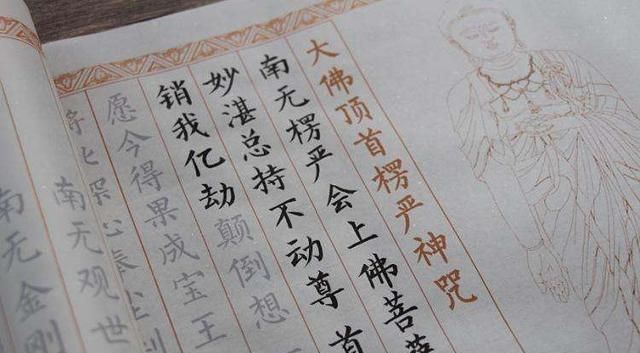 大佛顶首楞严神咒
南无楞严会上佛菩萨
妙湛总持不动尊 首
销我亿劫颠倒想
愿今得果成宝王
深心奉
南无观世
南无金刚